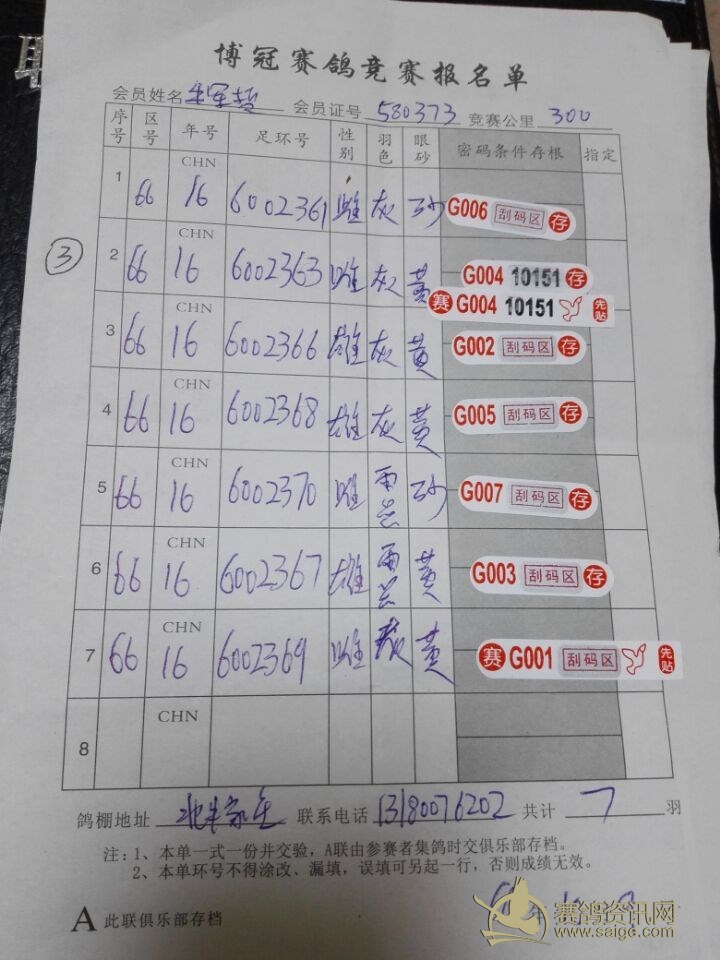 博冠赛鸽竞赛报名单
会员姓名 会员证号 580373 竞赛公里 300
序号 区号 年号 足环号 性别 羽色 眼砂 密码条件存根 指定
1 66 CHN 16 6002361 雌 灰 砂 G006 刮码区 存
③
2 66 CHN 16 6002363 雌 灰 黄 G004 10151 存
赛 G004 10151 先贴
3 66 CHN 16 6002366 雄 灰 黄 G002 刮码区 存
4 66 CHN 16 6002368 雄 灰 黄 G005 刮码区 存
5 66 CHN 16 6002370 雌 雨点 砂 G007 刮码区 存
6 66 CHN 16 6002367 雄 雨点 黄 G003 刮码区 存
7 66 CHN 16 6002369 雌 灰 黄 赛 G001 刮码区 先贴
8 CHN
鸽棚地址 联系电话 13180076202 共计 7 羽
注：1、本单一式一份并交验，A联由参赛者集鸽时交俱乐部存档。
2、本单环号不得涂改、漏填，误填可另起一行，否则成绩无效。
A 此联俱乐部存档
赛鸽资讯网
www.saige.com